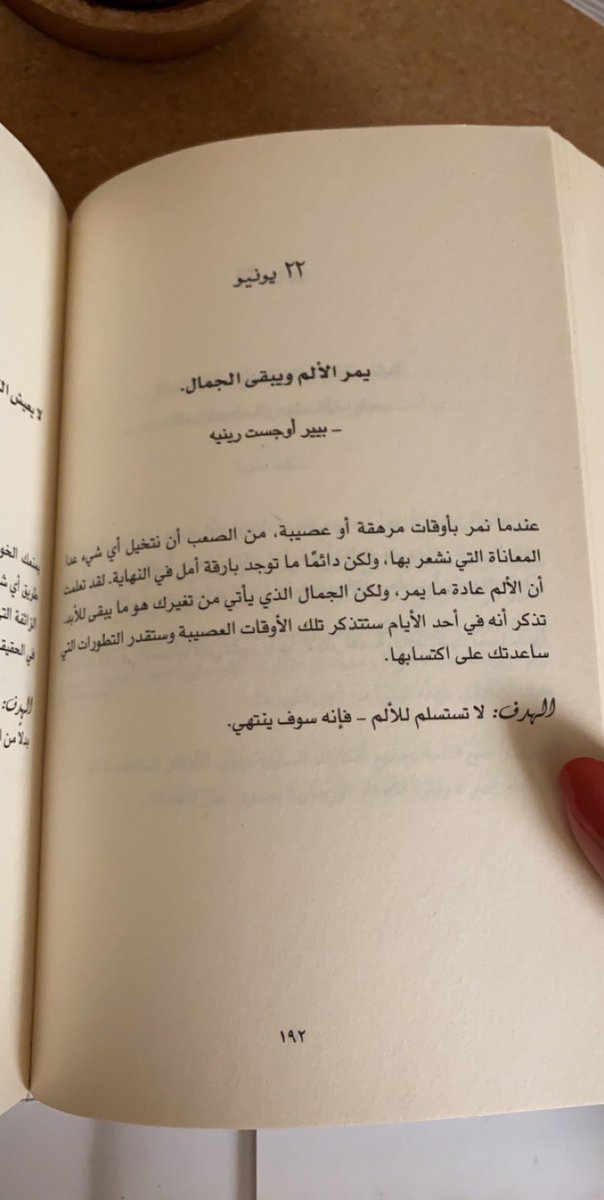 ٢٢ يونيو
يمر الألم ويبقى الجمال.
– بيير أوجست رينيه
عندما نمر بأوقات مرهقة أو عصيبة، من الصعب أن نتخيل أي شيء عدا
المعاناة التي نشعر بها، ولكن دائمًا ما توجد بارقة أمل في النهاية. لقد تعلمت
أن الألم عادة ما يمر، ولكن الجمال الذي يأتي من تغيرك هو ما يبقى للأبد.
تذكر أنه في أحد الأيام ستتذكر تلك الأوقات العصيبة وستقدر التطورات التي
ساعدتك على اكتسابها.
الهدف: لا تستسلم للألم – فإنه سوف ينتهي.
١٩٢
لا يعيش
يمنعك
طريق أي
الزائفة
في
الهدف:
بدلًا من